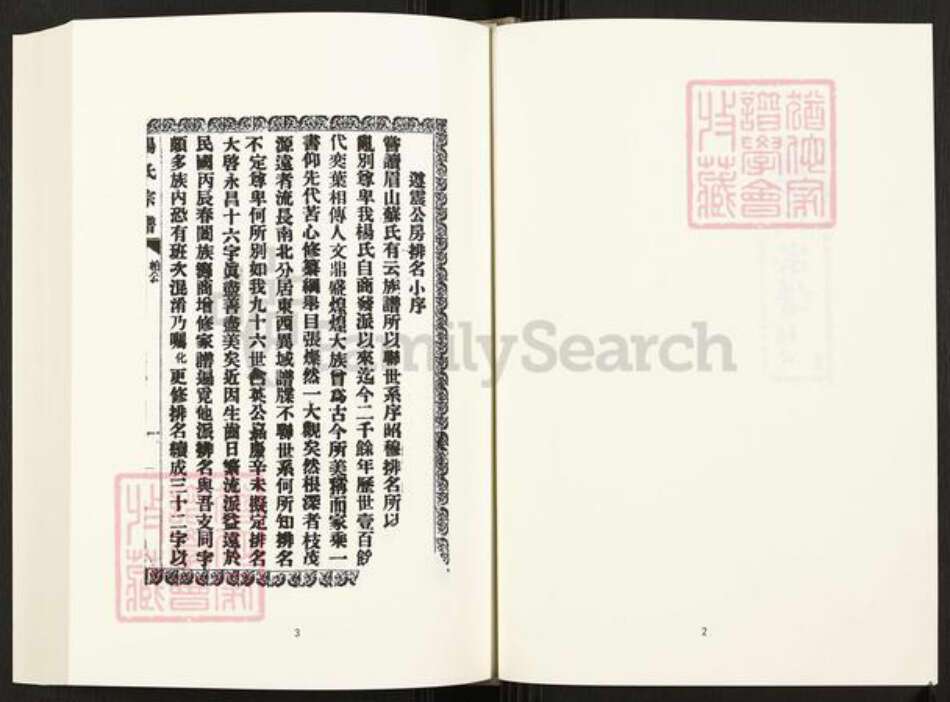 猶他家
譜學會
收藏
2
遵震公房排名小序
嘗讀眉山蘇氏有云族譜所以聯世系序昭穆排名所以
亂別尊卑我楊氏自商發派以來迄今二千餘年歷世壹百餘
代奕葉相傳人文鼎盛煌煌大族曾為古今所美稱而家乘一
書仰先代苦心修纂綱舉目張燦然一大觀矣然根深者枝茂
源遠者流長南北分居東西異域譜牒不聯世系何所知排名
不定尊卑何所別如我九十六世含英公嘉慶辛未擬定排名
大啓永昌十六字眞盡善盡美矣近因生齒日繁流派益遠於
民國丙辰春闔族籌商增修家譜遍覓他派排名與吾支同字
頗多族內恐有班次混淆乃囑化更修排名續成三十二字以
楊氏宗譜
一
猶他家
譜學會
收藏
3
FamilySearch